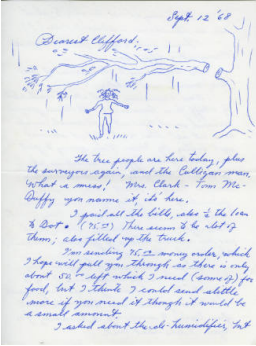 Sept. 12 '68
Dearest Clifford.
The tree people are here today, plus
the surveyors again, and the Culligan man
What a mess! Mrs. Clark - Tom Mc-
Duffy you name it, it's here.
I paid all the bills, also ½ the loan
to Dot. (75.00) There seem to be a lot of
them; also filled up the truck.
I'm sending 75.00 money order, which
I hope will pull you through as there is only
about 50.00 left which I need (some of) for
food, but I think I could send a little
more if you need it though it would be
a small amount
I asked about the de-humidifier, but